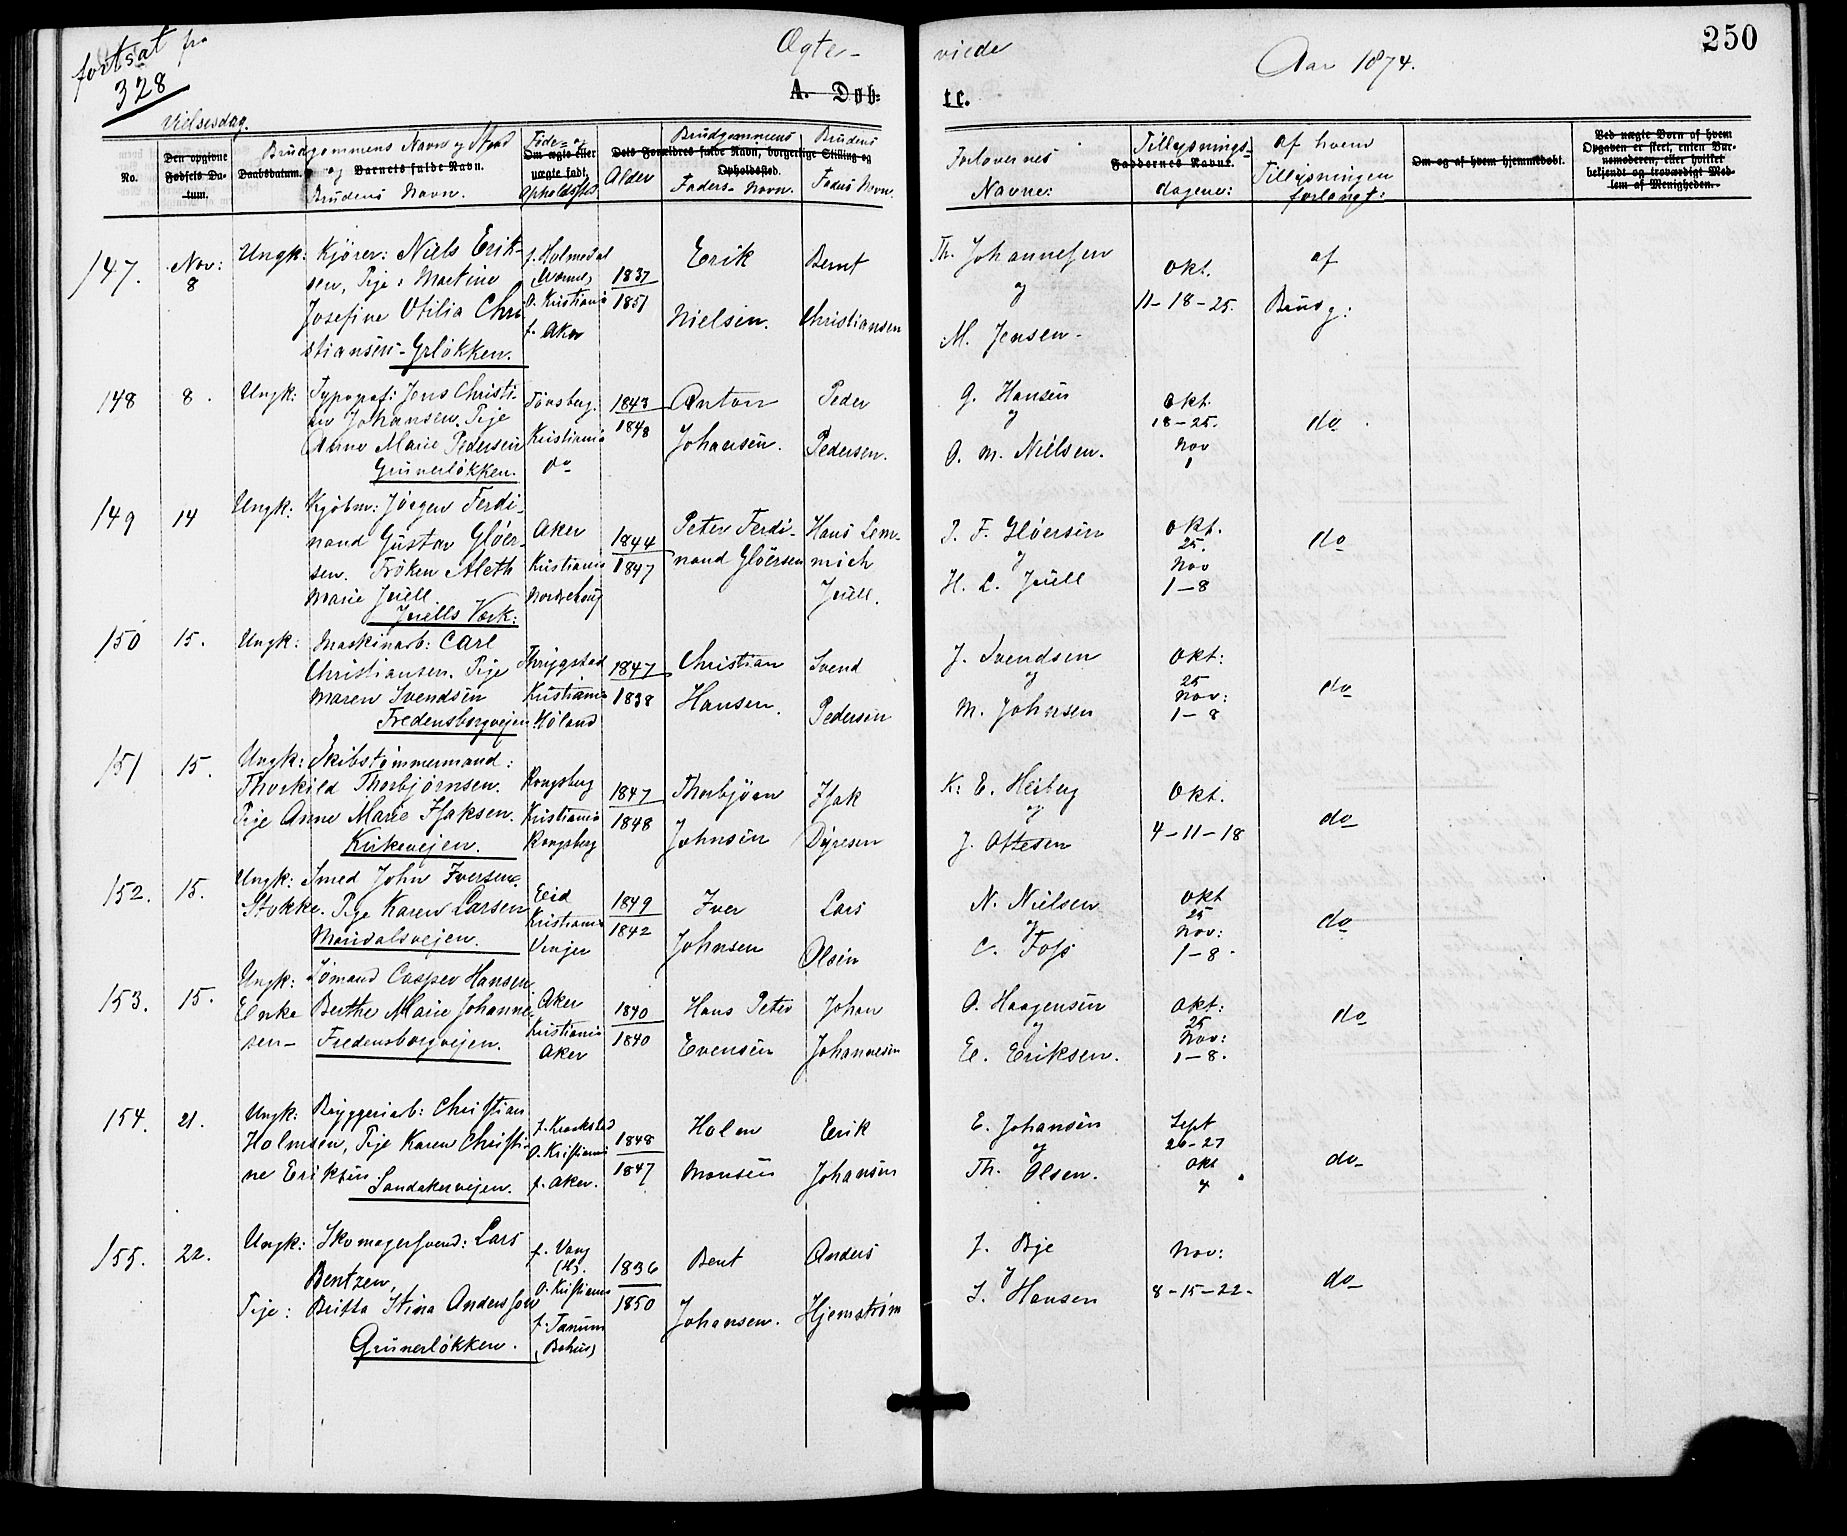 fortsat fra
328
Ægte-
viede
Aar 1874.
250
A. Døb-
te.
Vielsesdag.
No.
Den opgivne Fødsels Datum.
Daabsdatum.
Brudgommens Navn og Stand
og Barnets fulde Navn.
Brudens Navn.
Føde- og
Om ægte eller uægte født.
Opholdssted
Alder
Brudgommens
Brudens
Dets Forældres fulde Navn, borgerlige Stilling og Opholdssted.
Faders Navn.
Faders Navn.
Forlovernes
Navne:
Tillysnings-
Faddernes Navne.
dagene:
af hvem
Tillysningen
forlangt:
Om og af hvem hjemmedøbt.
Ved uægte Børn af hvem Opgaven er skeet, enten Barnemoderen, eller hvilket bekjendt og troværdigt Medlem af Menigheden.
147. Nov: 8
Ungk: Kjører: Niels Erik-
sen, Pige: Martine
Josefine Otilia Chri
stiansen - Grløkken.
f. Holmedal
O. Kristiania
f. Aker
1837
1851
Erik
Nielsen.
Bernt
Christiansen
Th. Johannesen
og
M. Jensen.
Okt.
11-18-25.
af
Brudg:
148 8.
Ungk: Typograf: Jens Christi-
an Johansen. Pige
Anne Marie Pedersen
Grünerløkken.
Tönsberg.
Kristiania
do
1843
1848
Anton
Johansen.
Peder
Pedersen.
G. Hansen
og
O. M. Nielsen.
Okt.
18-25.
Nov
1
do
149 14
Ungk: Kjøbm: Jörgen Ferdi-
nand Gustav Glöer-
sen. Frøken Aleth
Marie Juell.
Juells Værk:
Aker
Kristiania
Norderhoug
1844
1847
Peter Ferdi-
nand Glöersen
Hans Lem-
mich
Juell.
J. F. Glöersen
og
H. L. Juell
Okt.
25.
Nov
1-8
do
150 15.
Ungk: Maskinarb: Carl
Christiansen. Pige
Maren Svendsen
Fredensborgvejen
Thrygstad
Kristiania
Høland
1847
1838
Christian
Hansen.
Svend
Pedersen
J. Svendsen
og
M. Johnsen
Okt:
25
Nov:
1-8
do
151 15.
Ungk: Skibstømmermand:
Thorkild Thorbjørnsen.
Pige Anne Marie Isaksen.
Kirkevejen.
Kongsberg
Kristiania
Kongsberg
1847
1848
Thorbjörn
Johnsen
Isak
Dyresen
K. E. Heiberg
og
J. Ottesen
Okt.
4-11-18
do
152. 15.
Ungk: Smed John Iversen
Stokke. Pige Karen Larsen
Maridalsvejen.
Eid
Kristiania
Vinger
1849
1842
Iver
Johnsen
Lars
Olsen
N. Nielsen
og
C. Foss
Okt
25
Nov:
1-8.
do
153. 15.
Ungk: Sømand Casper Hansen
Enke Berthe Marie Johanne-
sen- Fredensborgvejen.
Aker
Kristiania
Aker
1840
1840
Hans Peter
Evensen
Johan
Johannesen
O. Haagensen
og
E. Eriksen.
Okt:
25
Nov:
1-8.
do
154. 21.
Ungk: Bryggeriarb: Christian
Holmsen, Pige Karen Christi-
ne Eriksen.
Sandakervejen.
f. Kraakstad
O. Kristiania
f. Aker.
1848
1847
Holm
Monsen
Erik
Johansen
E. Johansen
og
Th. Olsen.
Sept
20-27
Okt
4
do
155. 22.
Ungk: Skomagersvend: Lars
Bentzen,
Pige: Britta Stina Andersson
Grünerløkken.
f. Vang
(H).
O. Kristiania
f. Tanum
(Bohus)
1836
1850
Bent
Johansen.
Anders
Hjemstrøm
J. Bye
og
S. Hansen
Nov:
8-15-22-
do